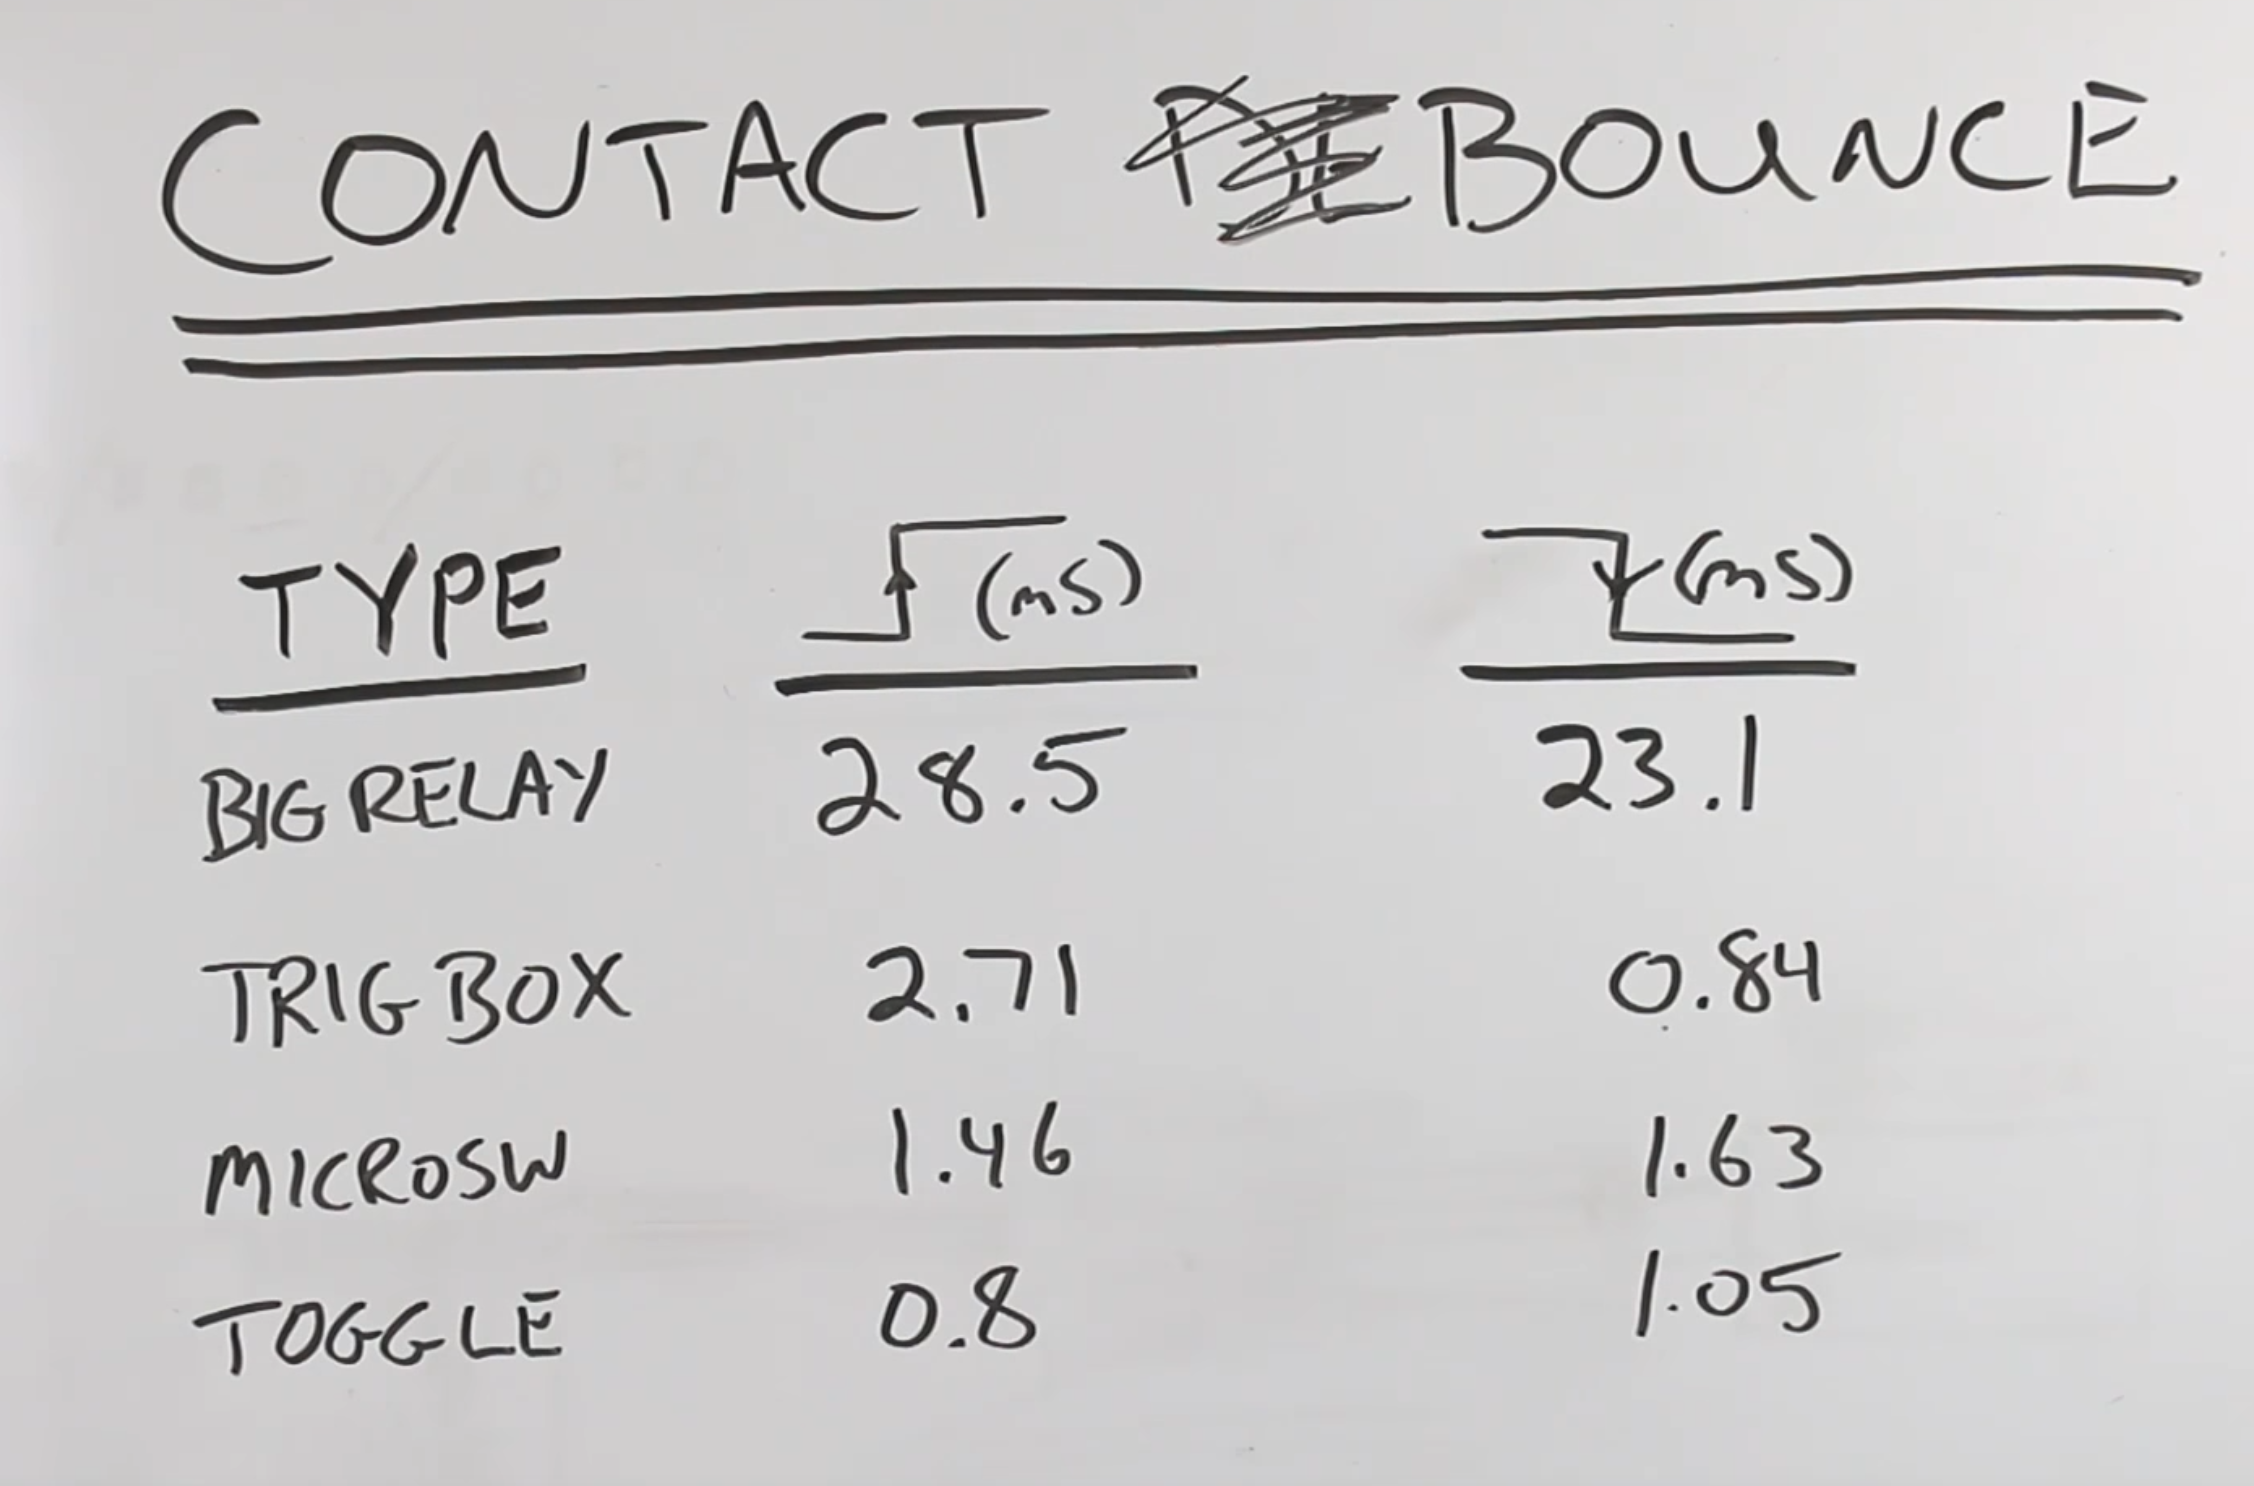 CONTACT BOUNCE
TYPE (mS) (mS)
BIG RELAY 28.5 23.1
TRIG BOX 2.71 0.84
MICROSW 1.46 1.63
TOGGLE 0.8 1.05